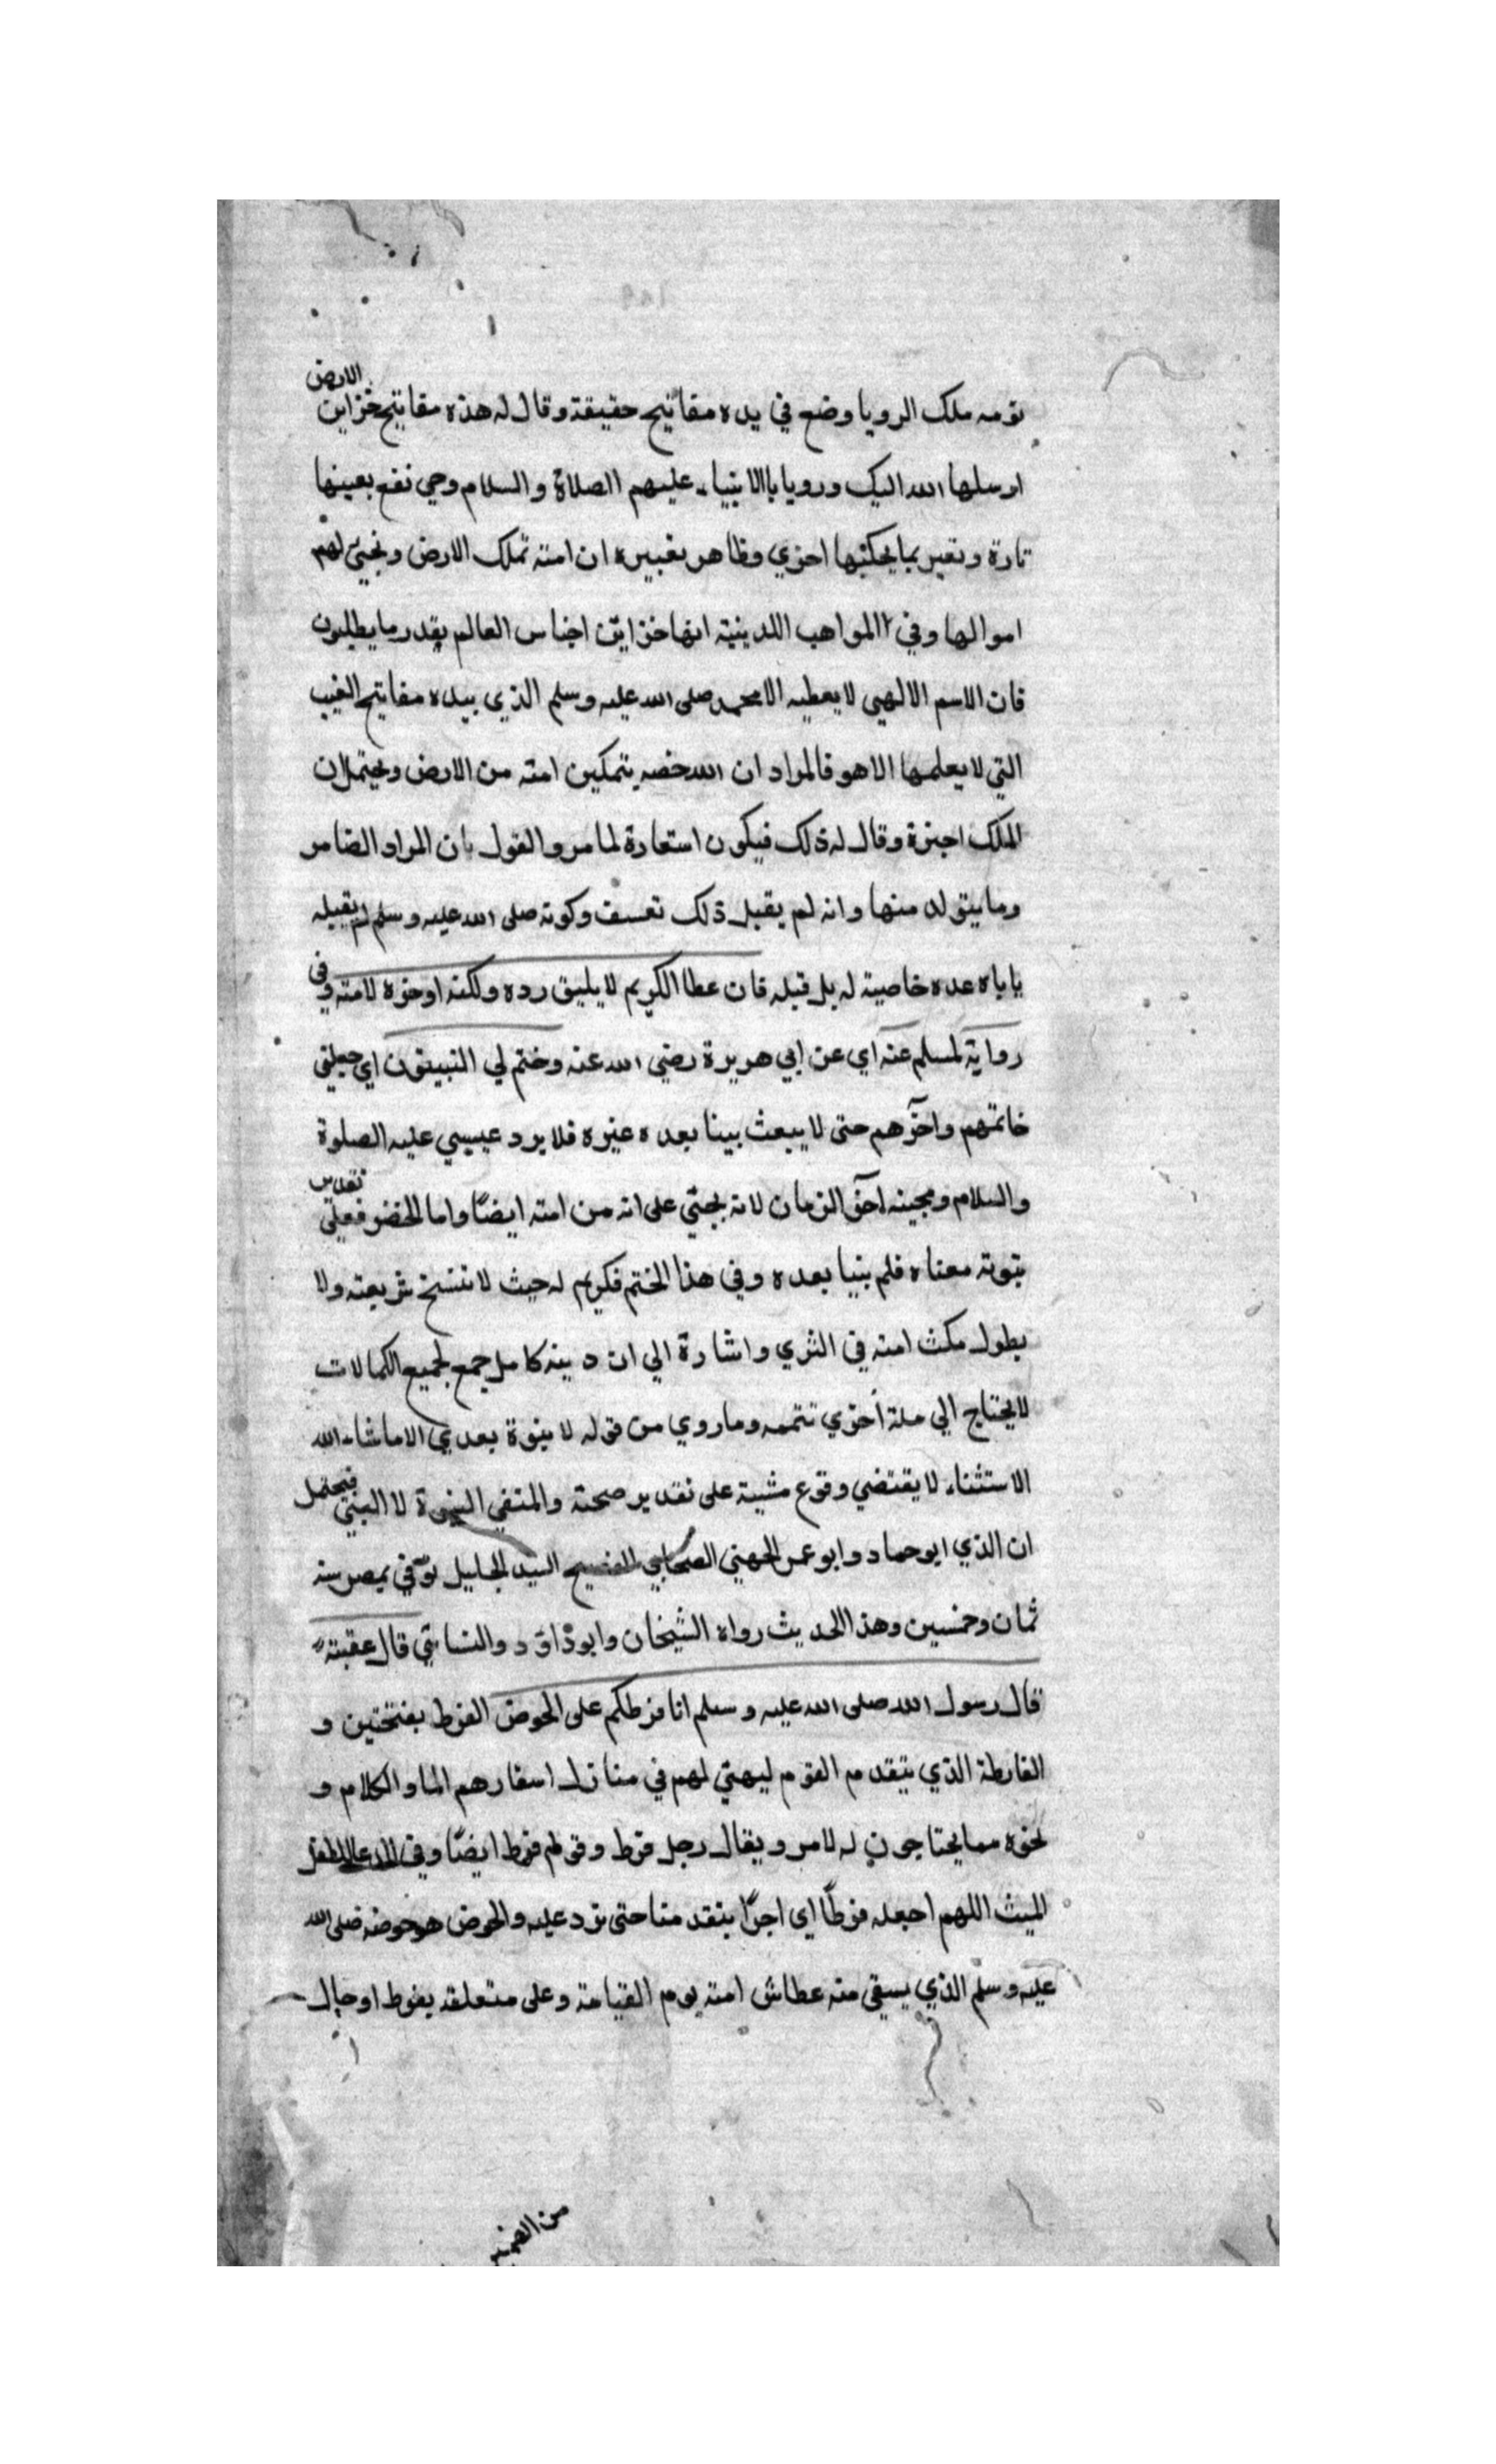 نومه ملك الرويا وضع في يده مفاتيح حقيقة وقال له هذه مفاتيح خزاين الارض
ارسلها الله اليك ورويا باالانبياء عليهم االصلاة والسلام وحي نقع بعينها
تارة وتعبر بما يحكيها اخري وظاهر تعبيره ان امته تملك الارض ونجيئ لهم
اموالها وفي االمواهب اللدينية انها خزاين اجناس العالم بقدر ما يطلبون
فان الاسم الالهي لا يعطيه الا محمد صلى الله عليه وسلم الذي بيده مفاتيح الغيب
التي لا يعلمها الا هو فالمراد ان الله خصه بتمكين امته من الارض ويحتمل ان
الملك اجنزة وقال له ذلك فيكون استعارة لما مر والقول بان المراد الضامر
وما يتولد منها وانه لم يقبل ذلك تعسف وكونه صلى الله عليه وسلم لم يقبله
ياباه عده خاصية له بل قبله فان عطا الكريم لا يليق رده ولكنه اوخزه لامته وفي
رواية لمسلم عنه اي عن ابي هريرة رضي الله عنه وختم لي النبيون اي جعلني
خاتمهم واخرهم حتى لا يبعث بينا بعده غيره فلا يرد عيسي عليه الصلوة
والسلام ومجيئه اخر الزمان لانه يجئي على انه من امته ايضًا واما الخضر فعلي تقدير
نبوته معناه فلم ينبا بعده وفي هذا الختم فكريم له حيث لا تنسخ شريعته ولا
يطول مكث امته في الثري واشارة الي ان دينه كامل جمع لجميع الكمالات
لا يحتاج الي ملة أخري تتممه وما روي من قوله لا نبوة بعدي الا ماشاء الله
الاستثناء لا يقتضي وقوع مشية على تقدير صحته والمنفي النبوة لا النبي فيحتمل
ان الذي ابو حماد وابو عمر الجهني الصحابي الفصيح السيد الجليل توفي بمصر سنه
ثمان وخمسين وهذا الحديث رواه الشيخان وابو داود والنسائي قال عقبة
قال رسول الله صلى الله عليه وسلم انا فرطكم على الحوض الفرط بفتحتين و
الفارطة الذي يتقدم القوم ليهيي لهم في منازل اسفارهم الما والكلام و
نحوه مما يحتاجون له لامر ويقال رجل فرط وقولهم فرط ايضًا وفي الدعا للطفل
الميت اللهم اجعله فرطًا اي اجرًا يتقدمنا حتى نرد عليه والحوض هو حوضه صلى الله
عليه وسلم الذي يسقي منه عطاش امته يوم القيامة وعلى متعلقه بفرط او حال
من الضمير